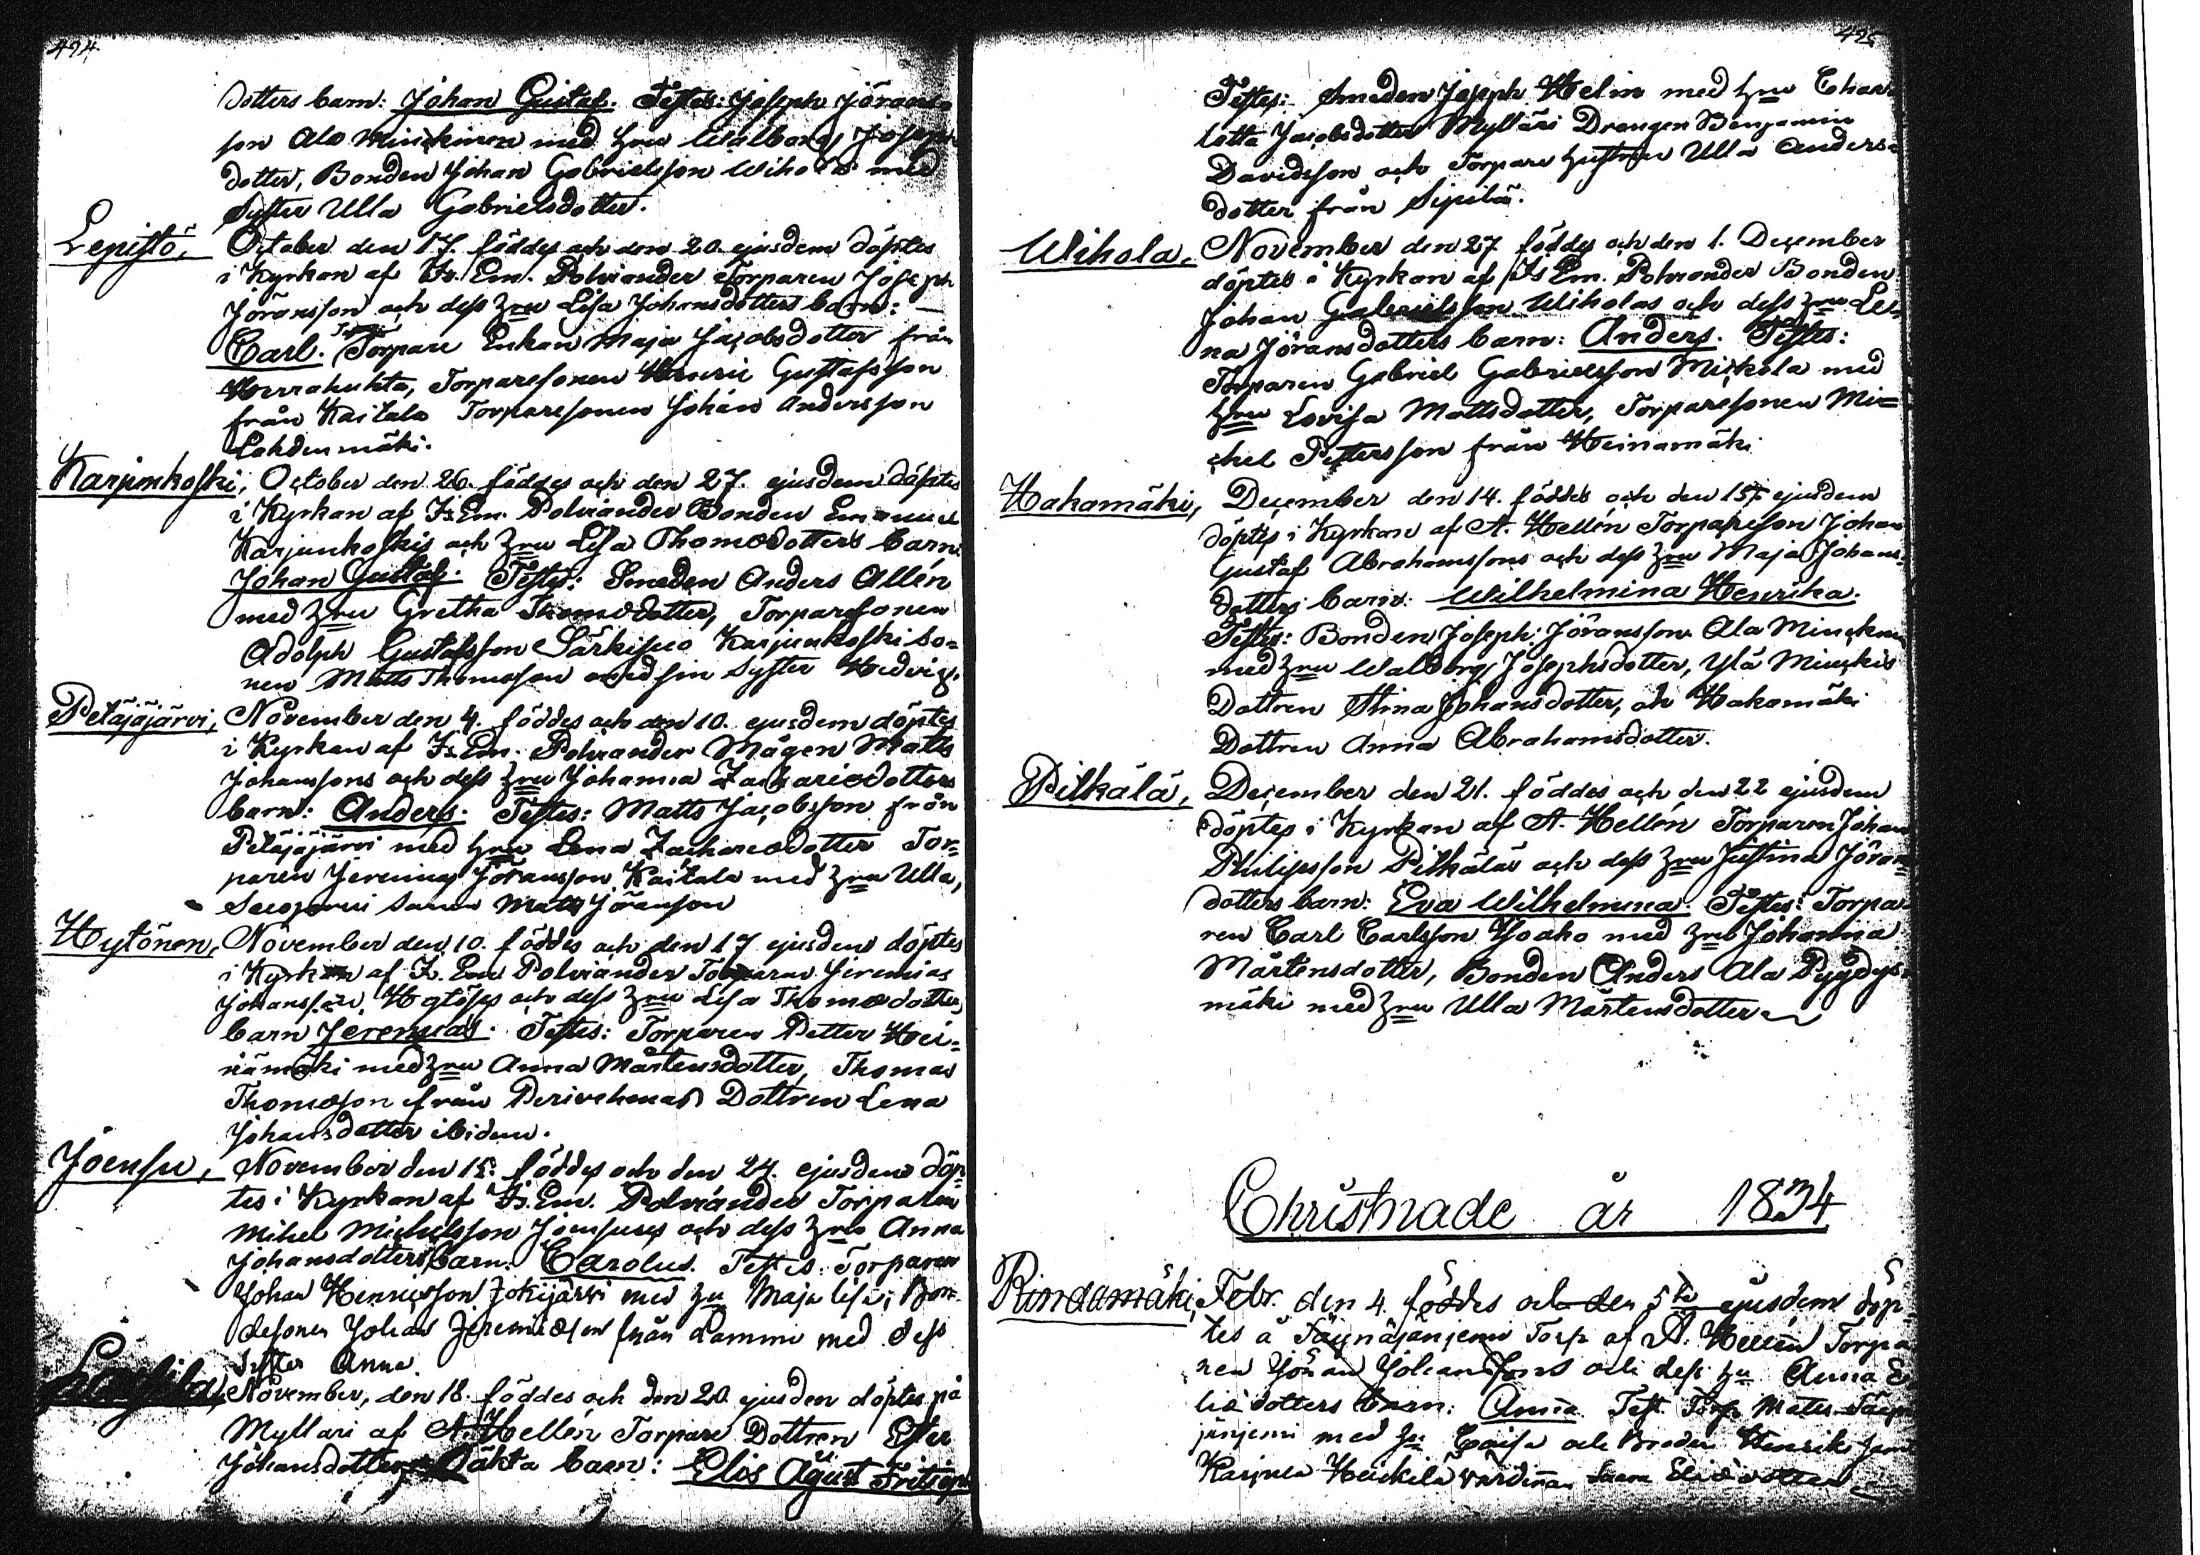 494.
dotters barn: Johan Gustaf. Testes: Joseph Jörans-
son Ala Minckinen med hru Walborg Joseph
dotter, Bonden Johan Gabrielsson Wihola med
Syster Ulla Gabrielsdotter.
Lepistö, October den 17. föddes och den 20. ejusdem döptes
i Kyrkan af Is. Em. Polviander Torparen Joseph
Jöransson och dess hru Lisa Johansdotters barn: —
Carl. Torpare Enkan Maja Jacobsdotter från
Herrakuhta, Torparesonen Henric Gustafsson
från Kaitala Torparesonen Johan Andersson
Lahdenmäki.
Karjunkoski, October den 26. föddes och den 27. ejusdem döptes
i Kyrkan af Is Em. Polviander Bonden Emanuel
Karjunkoskis och hru Lisa Thomædotters barn
Johan Gustaf. Testes: Smeden Anders Allén
med hru Gretha Thomædotter, Torparesonen
Adolph Gustafsson Särkisuo Karjunkoski So-
nen Matts Thomæson med sin Syster Hedvig.
Petäjäjärvi, November den 4. föddes och den 10. ejusdem döptes
i Kyrkan af Is. Em. Polviander Mågen Matts
Johanssons och dess hru Johanna Zachariædotters
barn: Anders. Testes: Matts Jacobsson från
Petäjäjärvi med hru Lena Zachariædotter Tor-
paren Jeremias Jöransson Kaitala med hru Ulla,
Matts Jöransson
Hytönen, November den 10. föddes och den 17 ejusdem döptes
i Kyrkan af Is. Em Polviander Torparen Jeremias
Johansson, Hytöses och dess hru Lisa Thomædotter,
barn Jeremias. Testes: Torparen Petter Hei-
nämäki med hru Anna Mårtensdotter, Thomas
Thomæson från Dottren Lena
Johansdotter ibidem.
Joensu, November den 15. föddes och den 24. ejusdem döp-
tes i Kyrkan af Is. Em. Polviander Torparen
Mihel Michelsson Joensuus och dess hru Anna
Johansdotters barn: Carolus. Testes: Torparen
Johan Henricsson Jokijärvi med hu Maja Lisa; Bon-
desonen Johan Jeremiæson från Lammi med dess
Syster Anna.
November, den 18. föddes och den 20. ejusdem döptes på
Myllari af A. Hellén Torpare Dottren Ester
Johansdotters oäkta barn: Elis August
425
Testes: Smeden Joseph Helin med hru Char-
lotta Jacobsdotter Mylläri Drengen Benjamin
Davidsson och Torpare hustrun Ulla Anders-
dotter från Sipilä.
Wihola, November den 27 föddes och den 1. December
döptes i Kyrkan af Is Em. Polviander Bonden
Johan Gabrielsson Wiholas och dess hru Le-
na Jöransdotters barn: Anders. Testes:
Torparen Gabriel Gabrielsson Mickola med
hru Lovisa Mattsdotter, Torparesonen Mi-
chel Pettersson från Heinamäki
Hakamäki, December den 14. föddes och den 15. ejusdem
döptes i Kyrkan af A. Hellén Torpareson Johan
Gustaf Abrahamssons och dess hru Maja Johans-
dotters barn: Wilhelmina Henrika.
Testes: Bonden Joseph Jöransson Ala Minckin
med hru Walborg Josephsdotter, Ylä Minckis
Dottren Stina Johansdotter, och Hakamäki
Dottren Anna Abrahamsdotter.
Pitkälä, December den 21. föddes och den 22 ejusdem
döptes i Kyrkan af A. Hellén Torparen Johan
Philipsson Pitkäläs och dess hru Justina Jöran-
dotters barn: Eva Wilhelmina. Testes: Torpa-
ren Carl Carlsson Yoaho med hru Johanna
Mårtensdotter, Bonden Anders Ala Pyydys-
mäki med hru Ulla Mårtensdotter
Christnade år 1834
Rindamäki, Febr. den 4. föddes och den 5te ejusdem döp-
tes å Torp af A. Hellén Torpa-
ren Johan Johanssons och dess hu Anna E-
liædotters barn: Anna. Test. Torp. Matts
med hu Caisa och Brodern Henrik samt
Karjula Heickilä värdinan Saara Eliædotter